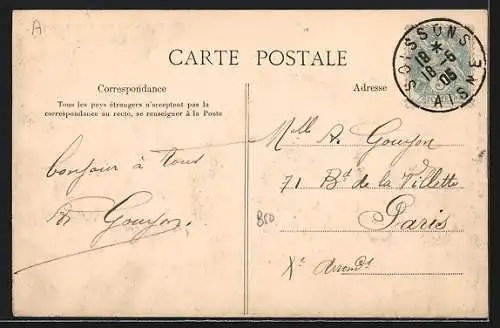 A
CARTE POSTALE
SOISSONS
18 * 
18 -6
05
AISNE
Correspondance
Tous les pays étrangers n'acceptent pas la
correspondance au recto, se renseigner à la Poste
Adresse
bonjour à tous
Goujon
Mlle A. Goujon
71 Bd de la Villette
Paris
Xe Arrondt